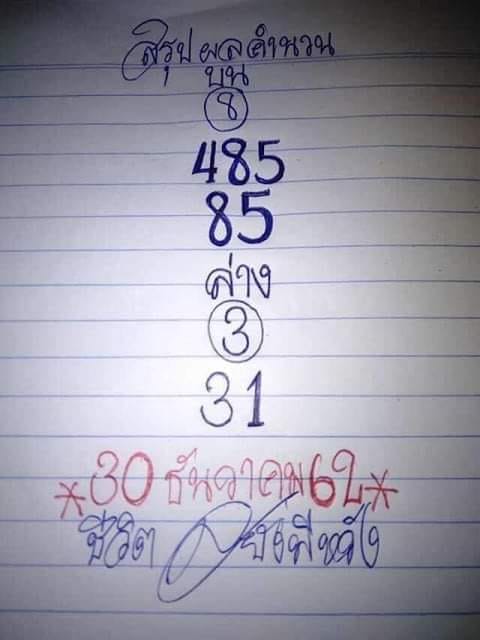 สรุปผลคำนวน
บน
8
485
85
ล่าง
3
31
*30 ธันวาคม62*
ชีวิต ยังมีหวัง